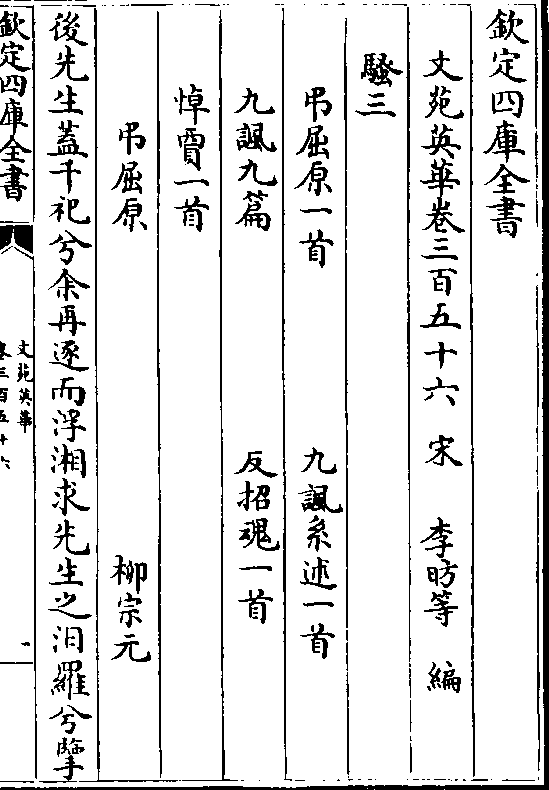 欽定四庫全書
文苑英華卷三百五十六 宋 李昉等 編
騷三
弔屈原一首 九諷系述一首
九諷九篇 反招魂一首
悼賈一首
弔屈原 柳宗元
後先生蓋千祀兮余再逐而浮湘求先生之汨羅兮擥
欽定四庫全書
文苑英華
卷三百五十六
一